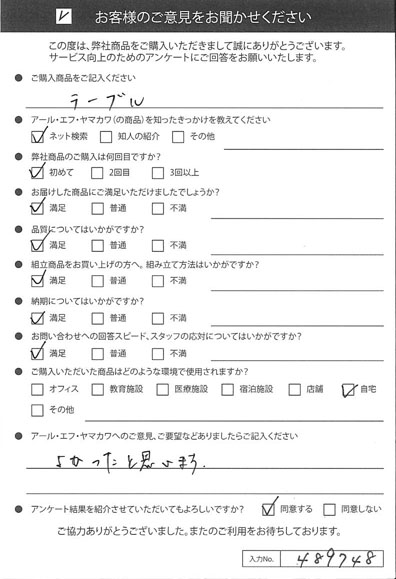 お客様のご意見をお聞かせください
この度は、弊社商品をご購入いただきまして誠にありがとうございます。
サービス向上のためのアンケートにご回答をお願いいたします。
● ご購入商品をご記入ください
テーブル
● アール・エフ・ヤマカワ(の商品)を知ったきっかけを教えてください
ネット検索 知人の紹介 その他
● 弊社商品のご購入は何回目ですか?
初めて 2回目 3回以上
● お届けした商品にご満足いただけましたでしょうか?
満足 普通 不満
● 品質についてはいかがですか?
満足 普通 不満
● 組立商品をお買い上げの方へ。組み立て方法はいかがですか?
満足 普通 不満
● 納期についてはいかがですか?
満足 普通 不満
● お問い合わせへの回答スピード、スタッフの応対についてはいかがですか?
満足 普通 不満
● ご購入いただいた商品はどのような環境で使用されますか?
オフィス 教育施設 医療施設 宿泊施設 店舗 自宅
その他
● アール・エフ・ヤマカワへのご意見、ご要望などありましたらご記入ください
よかったと思います.
● アンケート結果を紹介させていただいてもよろしいですか? 同意する 同意しない
ご協力ありがとうございました。またのご利用をお待ちしております。
入力No. 489748